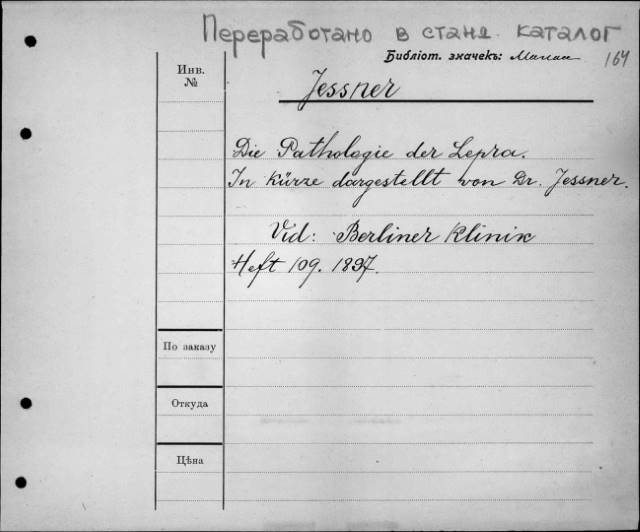 Переработано в станд. каталог
Библіот. значекъ:
164
Инв. №
Jessner
Die Pathologie der Lepra.
In Kürze dargestellt von Dr. Jessner.
Vid: Berliner Klinik
Heft 109. 1897.
По заказу
Откуда
Цѣна